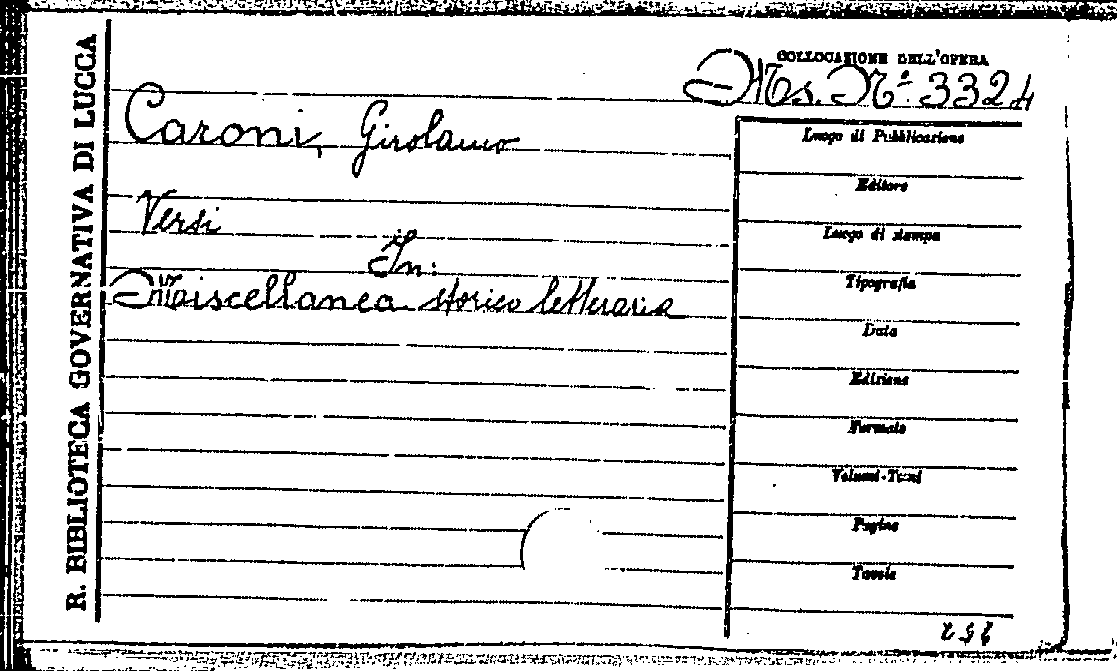 R. BIBLIOTECA GOVERNATIVA DI LUCCA
COLLOCAZIONE DELL'OPERA
Ms. Nº 3324
Caroni, Girolamo
Versi
In:
Miscellanea storico letteraria
Luogo di Pubblicazione
Editore
Luogo di stampa
Tipografia
Data
Edizione
Formato
Volumi-Tomi
Pagine
Tavole